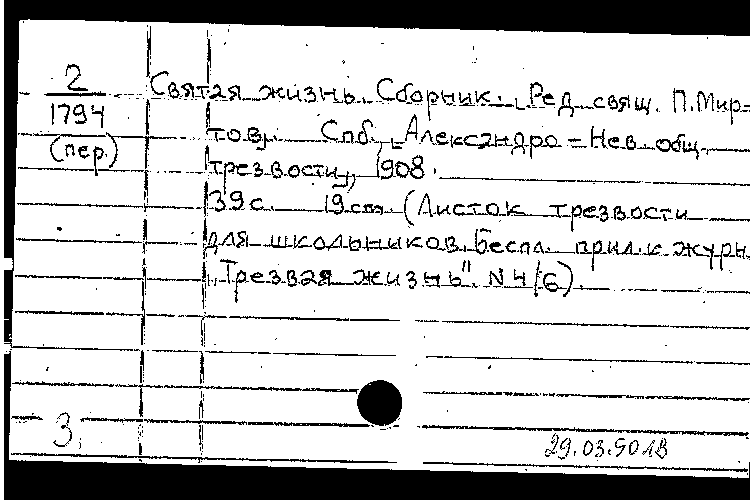 2
1794
(пер.)
Святая жизнь. Сборник. [Ред. свящ. П. Мир-
тов]. Спб., [Александро-Нев. общ.
трезвости], 1908.
39 с. 19 см. (Листок трезвости
для школьников. Беспл. прил. к журн.
"Трезвая жизнь". N 4/6).
3.
29.03.